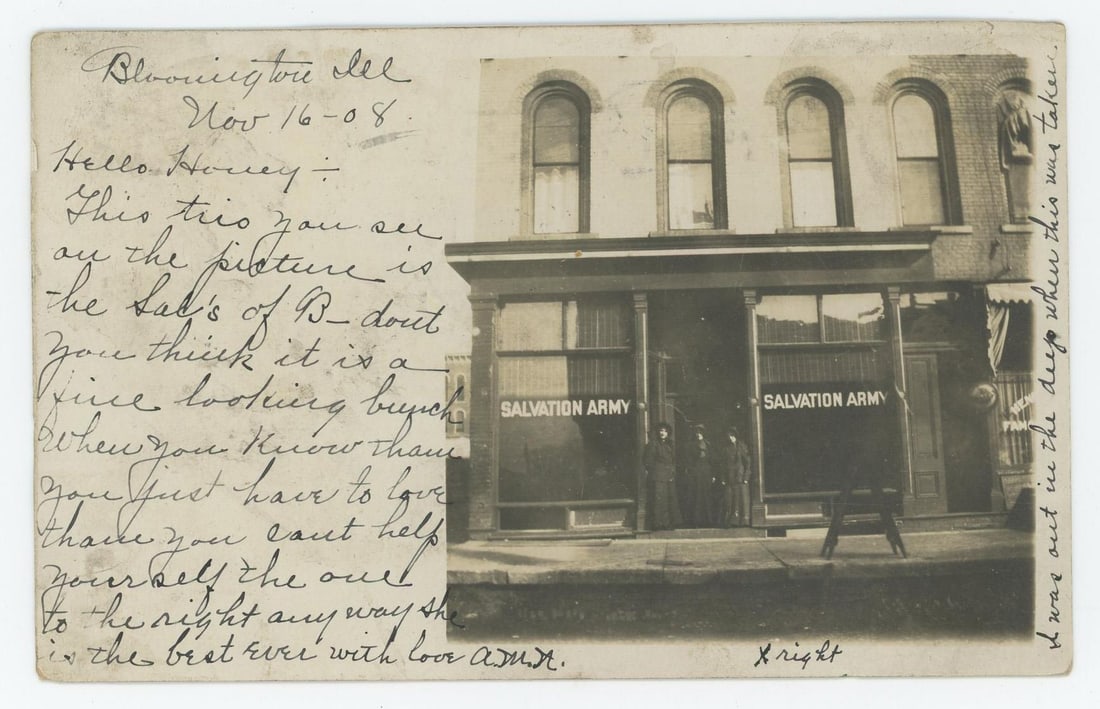 Bloomington Ill
Nov 16-08.
Hello Honey :-
This trio you see
on the picture is
the Sal's of B- dont
you think it is a
fine looking bunch
When you Know tham
you just have to love
tham you cant help
yourself the one
to the right any way she
is the best ever with love A.M.A.
SALVATION ARMY
SALVATION ARMY
X right
I was out in the deep when this was taken